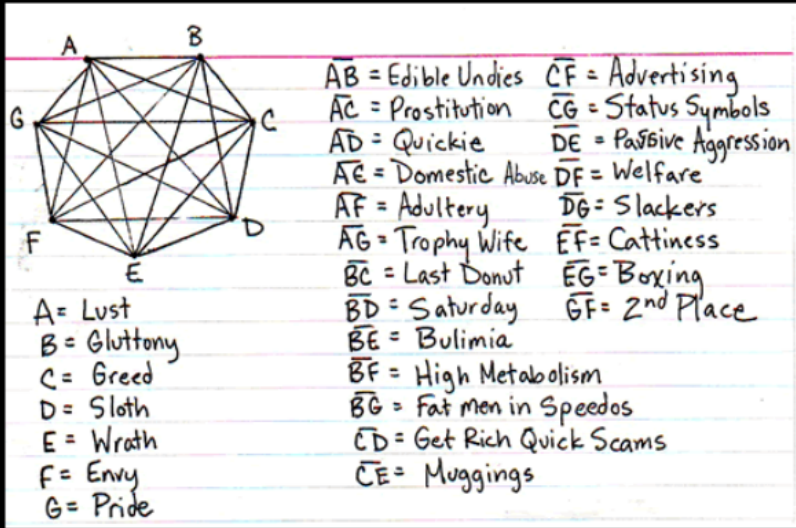 A
B
G
C
F
D
E
A= Lust
B= Gluttony
C= Greed
D= Sloth
E= Wrath
F= Envy
G= Pride
A̅B̅ = Edible Undies
A̅C̅ = Prostitution
A̅D̅ = Quickie
A̅E̅ = Domestic Abuse
A̅F̅ = Adultery
A̅G̅ = Trophy Wife
B̅C̅ = Last Donut
B̅D̅ = Saturday
B̅E̅ = Bulimia
B̅F̅ = High Metabolism
B̅G̅ = Fat men in Speedos
C̅D̅ = Get Rich Quick Scams
C̅E̅ = Muggings
C̅F̅ = Advertising
C̅G̅ = Status Symbols
D̅E̅ = Passive Aggression
D̅F̅ = Welfare
D̅G̅ = Slackers
E̅F̅ = Cattiness
E̅G̅ = Boxing
G̅F̅ = 2nd Place